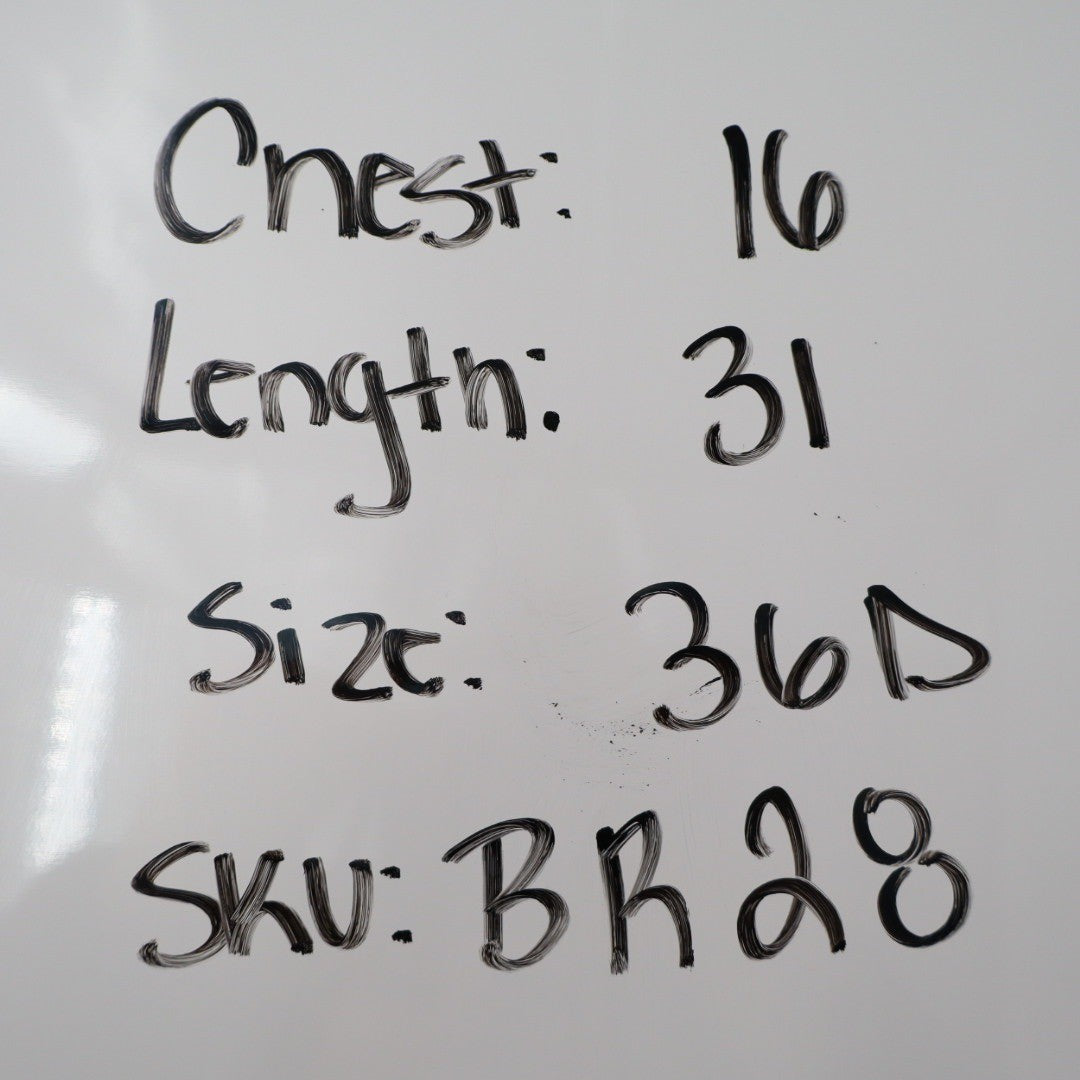 Chest: 16
Length: 31
Size: 36D
SKU: BR28